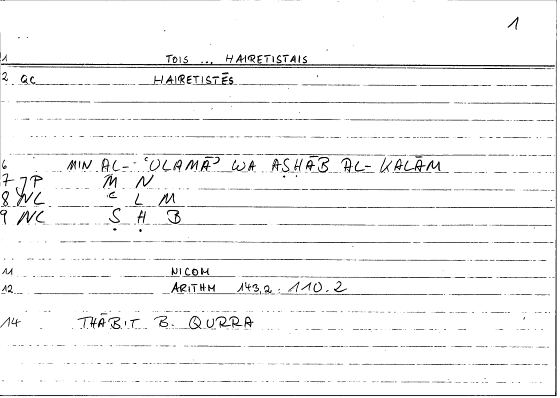 1
1 TOIS ... HAIRETISTAIS
2 QC HAIRETISTĒS
6 MIN AL- ʿULAMĀʾ WA AṢḤĀB AL-KALĀM
7 JP M N
8 NC ʿ L M
9 NC Ṣ Ḥ B
11 NICOM
12 ARITHM 143,2 : 110.2
14 THĀBIT B. QURRA